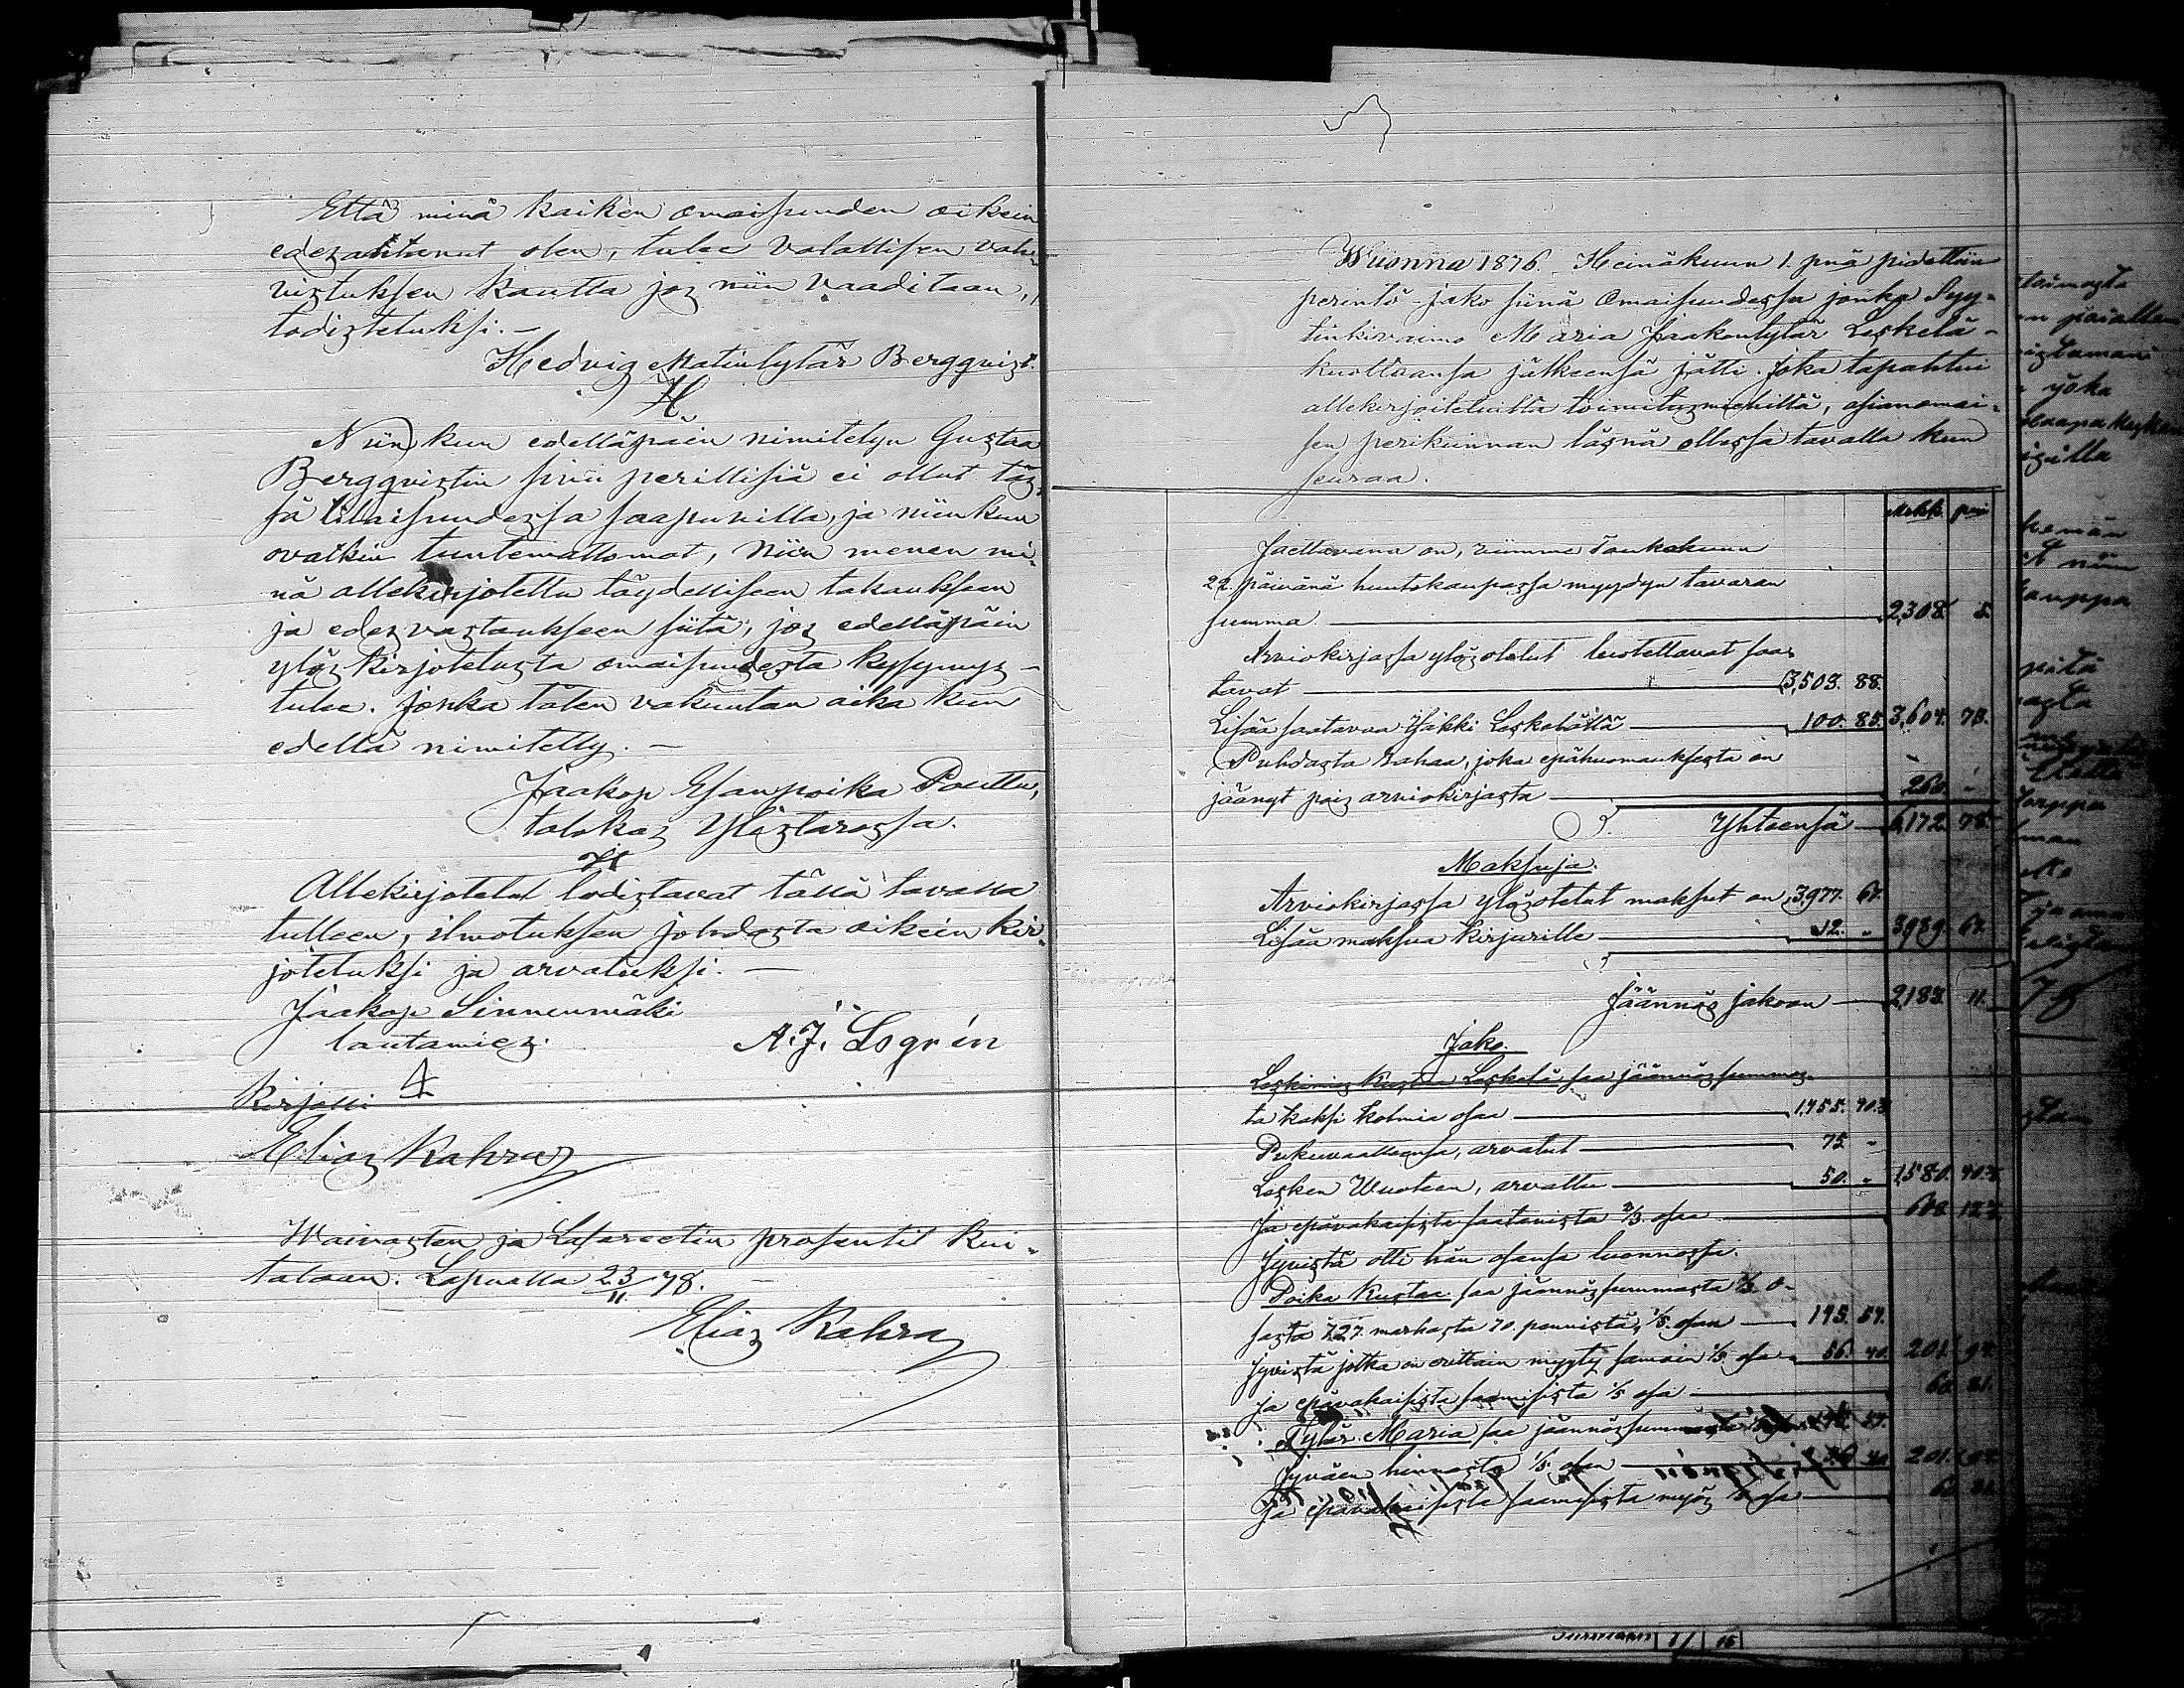 Että minä kaiken omaisuuden oikein
edezantanut olen, tulee valallisen vah-
vistuksen kautta joz niin vaaditaan,
todizteluksi.
Hedvig Matintytär Bergqvizt.
H
Niin kun edelläpäin nimitetyn Gustaa
Bergqviztin sivu perillisiä ei ollut täz-
sä tilaisuudezsa saapuvilla, ja niinkun
ovatkin tuntemattomat, Niin menen mi-
nä allekirjotettu täydelliseen takaukseen
ja edezvaztaukseen siitä, joz edelläpäin
ylöz kirjotetuzta omaisuudezta kysymyz
tulee. Jonka täten vakuutan aika kun
edellä nimitetty.
Jaakop Esanpoika Pouttu,
talokaz Ylizstarossa.
Allekirjotetut todiztavat tällä tavalla
tulleen, ilmotuksen johdozta oikein kir-
jotetuksi ja arvatuksi.
Jaakop Linnunmäki
lautamiez.
A. J. Logrén
Kirjotti
Eliaz Kahra
Waivazten ja Lasareetin prosentit kui-
tataan. Lapualla 23/11 78.
Eliaz Kahra
Wuonna 1876. Heinäkuun 1. pnä pidettiin
perintö-jako siinä Omaisuudessa jonka Syy-
tinkivaimo Maria Jaakontytär Leskelä
kuoltuansa jälkeensä jätti. Joka tapahtui
allekirjoitetuilta toimituzmiehiltä, asianomai-
sen perikunnan läsnä ollessa tavalla kun
seuraa.
Mkk. pni
Jaettavana on, viimme Toukokuun
22 päivänä huutokaupassa myydyn tavaran
summa 2,308. 5.
Arviokirjassa ylözotetut luotettavat saa-
tavat 3,503. 88.
Lisää saatavaa Jäkki Leskelältä 100. 85. 3,604. 73.
Puhdasta rahaa, joka epähuomauksesta on
jäänyt poiz arviokirjasta 260. -
Yhteensä 6,172. 78.
Maksuja.
Arviokirjassa ylözotetut maksut on 3,977. 67.
Lisää maksua kirjurille 12. " 3,989. 67.
Jäännös jakoon 2,183. 11.
Jako.
Leskimiez Kustaa Leskelä saa jäännözsummaz-
ta kaksi kolmia osaa 1,455. 40.
Pukuvaatteensa, arvatut 75 -
Lesken Wuoteen, arvattu 50. " 1,580. 40.
Ja epävakaisista saatavista 2/3 osaa
Jyvistä otti hän osansa luonnossa.
Poika Kustaa saa jäännözsummasta 1/3 o-
sasta 727. markasta 70. pennistä, 1/5. osan 145. 54.
Jyvistä jotka on erittäin myyty samoin 1/5 osa 56. 40. 201. 94.
ja epävakaisista saamisista 1/5 osa
Tytär Maria saa jäännözsummasta
Jyväen hinnasta 1/5 osan 56 40 201. 94.
Ja epävakaisista saamisista myöz 1/5 osa